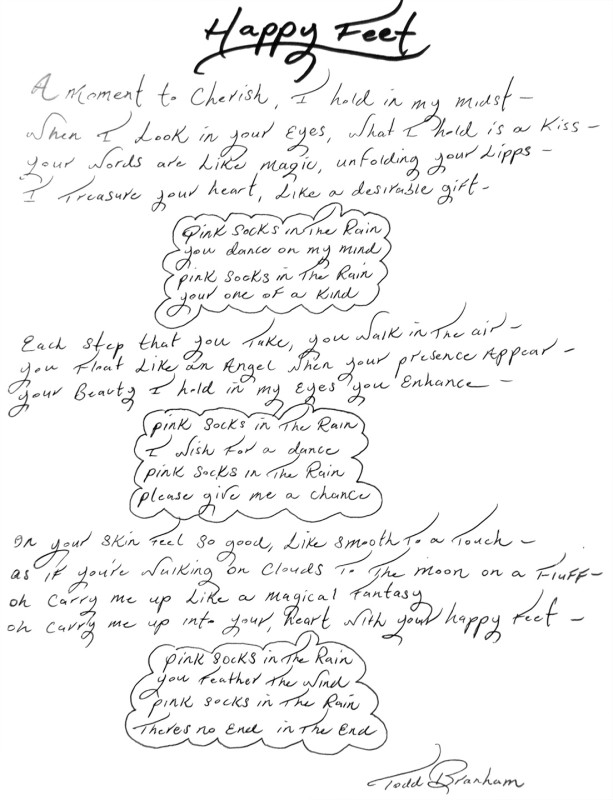 Happy Feet
A Moment to Cherish, I hold in my midst –
When I Look in your Eyes, What I hold is a Kiss –
your Words are Like Magic, unfolding your Lipps –
I Treasure your heart, Like a desirable gift –
pink Socks in The Rain
you dance on my mind
pink Socks in The Rain
your one of a Kind
Each Step that you Take, you Walk in The air –
you Float Like an Angel When your presence Appear –
your Beauty I hold in my Eyes you Enhance –
pink Socks in The Rain
I Wish For a dance
pink Socks in The Rain
please give me a chance
On your Skin Feel So good, Like Smooth To a Touch –
as if you're Walking on Clouds To The moon on a Fluff –
oh Carry me up Like a magical Fantasy
oh Carry me up into your, heart With your happy Feet –
pink Socks in The Rain
you Feather The Wind
pink Socks in The Rain
Theres no End in The End
Todd Branham